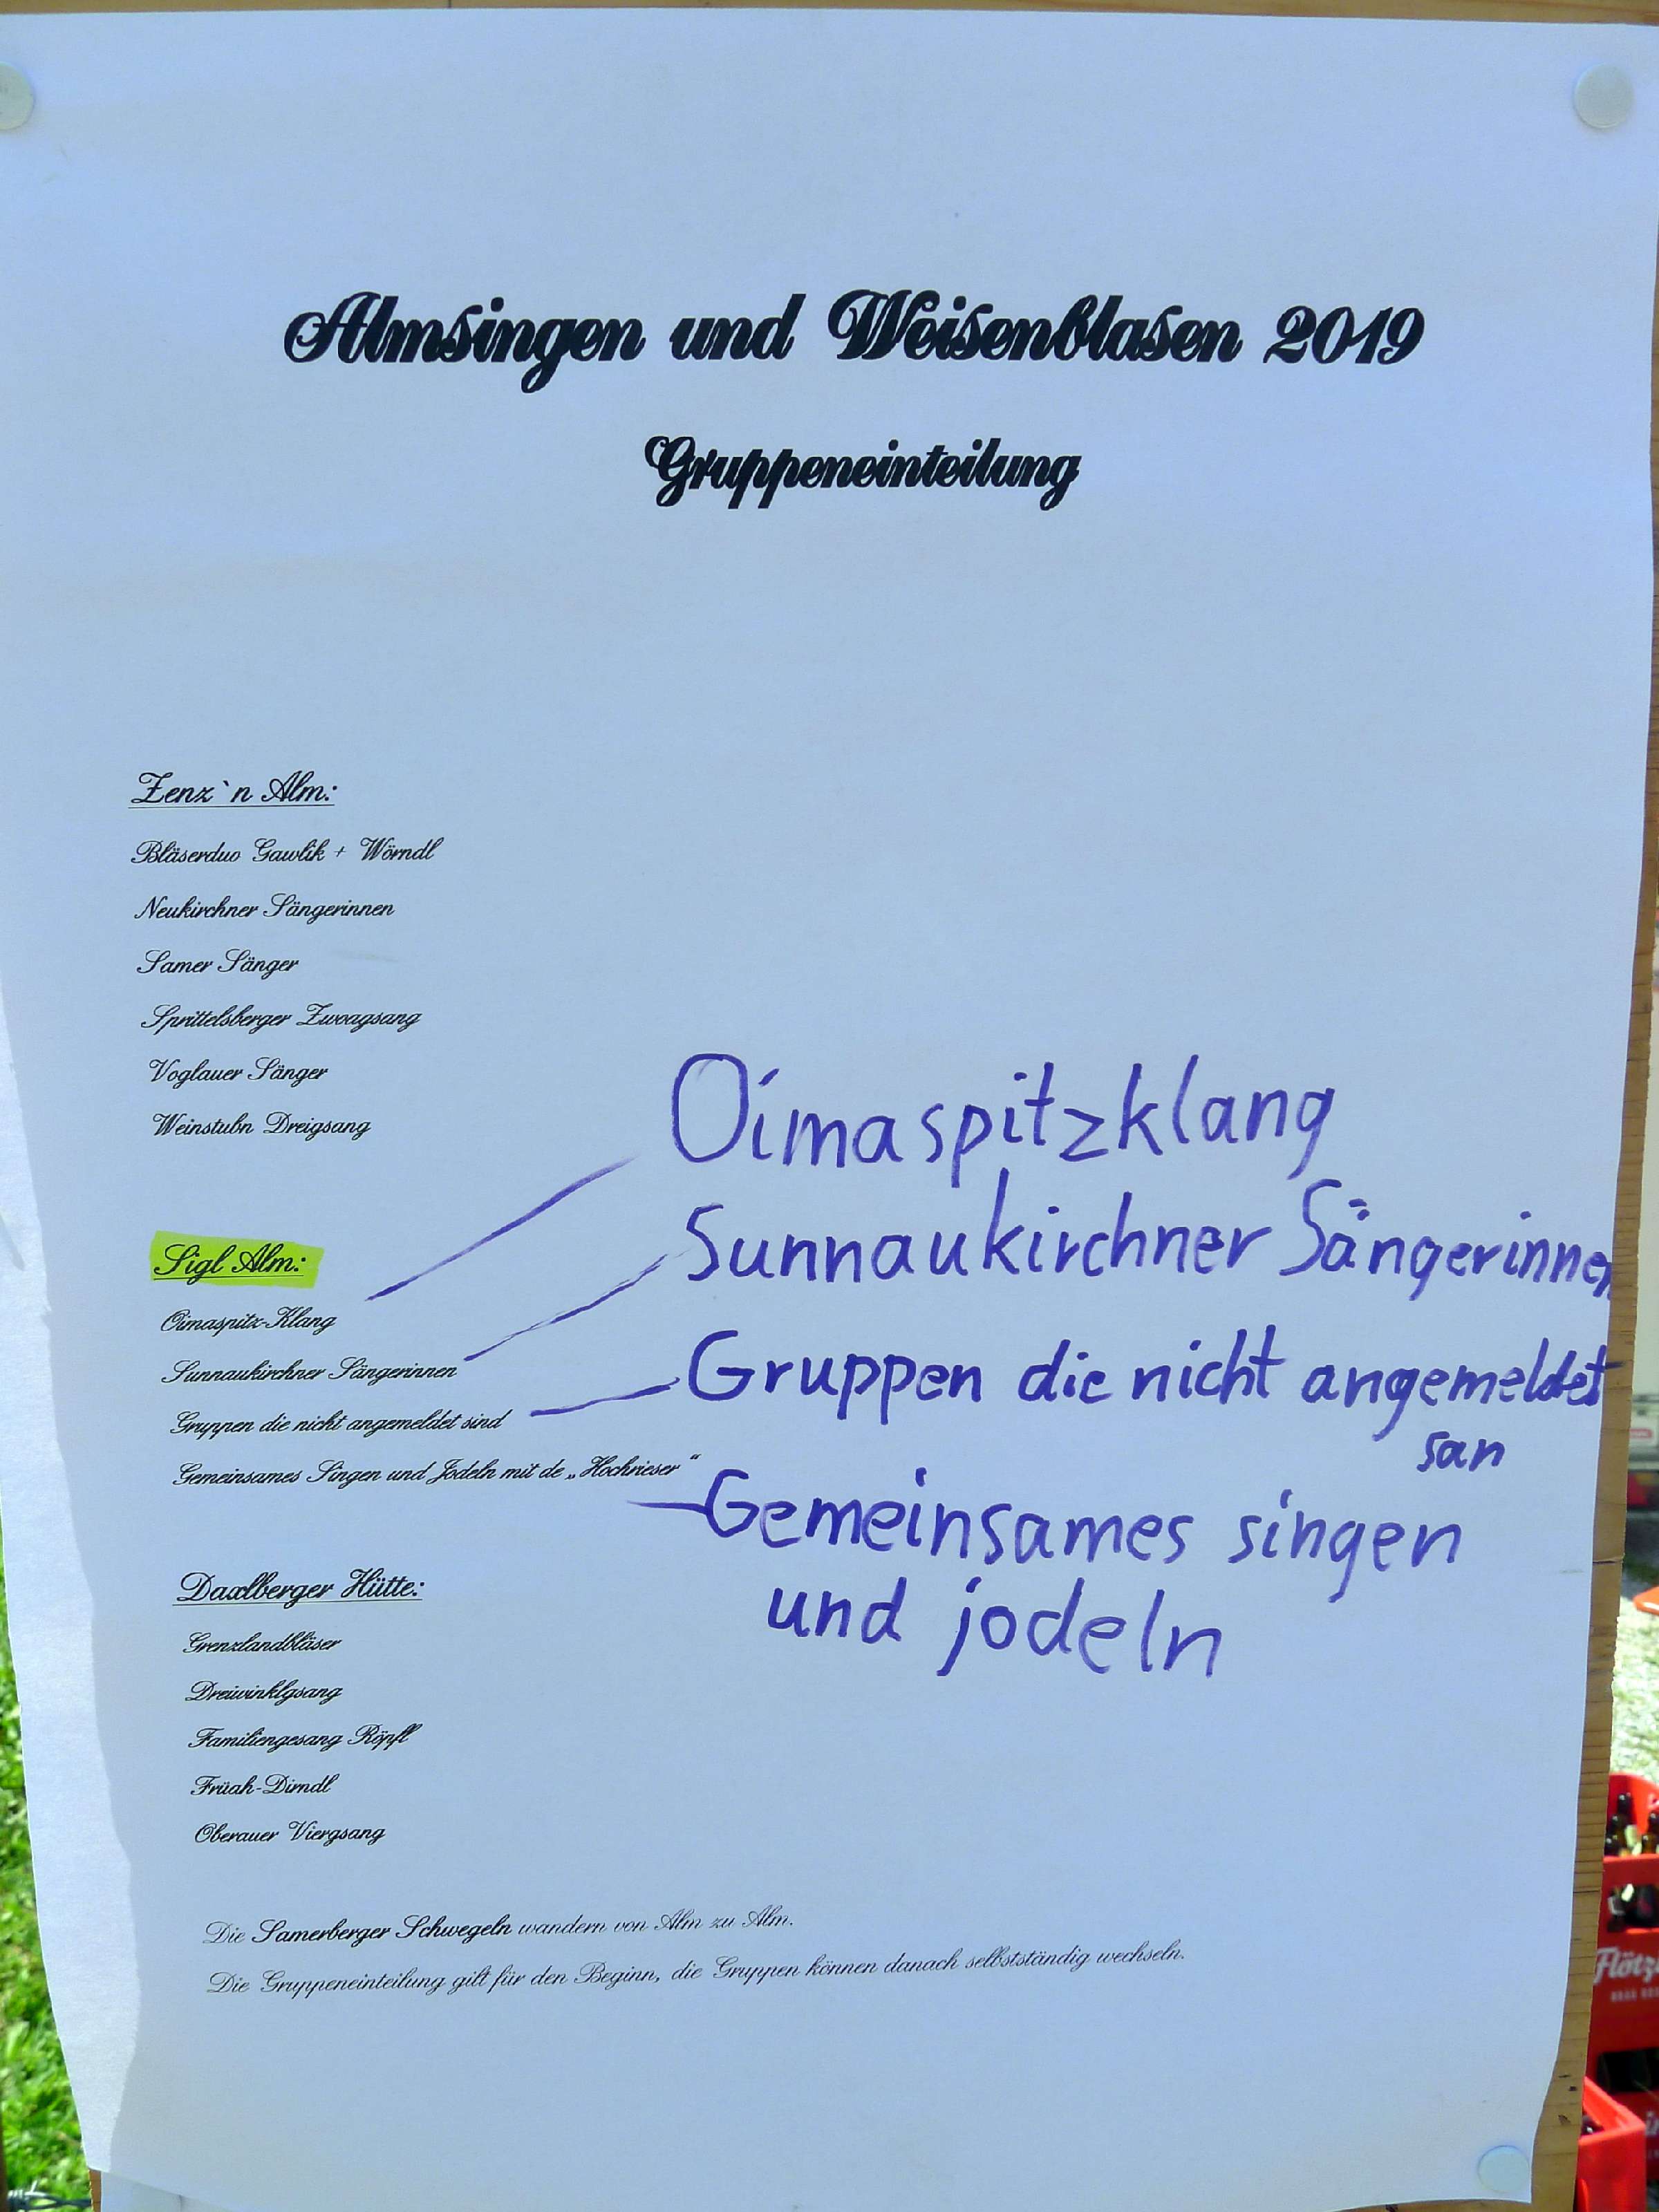 Almsingen und Weisenblasen 2019
Gruppeneinteilung
Zenz`n Alm:
Bläserduo Gawlik + Wörndl
Neukirchner Sängerinnen
Samer Sänger
Sprittelsberger Zwoagsang
Voglauer Sänger
Weinstubn Dreigsang
Sigl Alm:
Oimaspitz-Klang
Sunnaukirchner Sängerinnen
Gruppen die nicht angemeldet sind
Gemeinsames Singen und Jodeln mit de „Hochrieser“
Oimaspitzklang
Sunnaukirchner Sängerinnen
Gruppen die nicht angemeldet
san
Gemeinsames singen
und jodeln
Daxlberger Hütte:
Grenzlandbläser
Dreiwinklgsang
Familiengesang Röpfl
Früah-Dirndl
Oberauer Viergsang
Die Samerberger Schwegeln wandern von Alm zu Alm.
Die Gruppeneinteilung gilt für den Beginn, die Gruppen können danach selbstständig wechseln.
Flötz